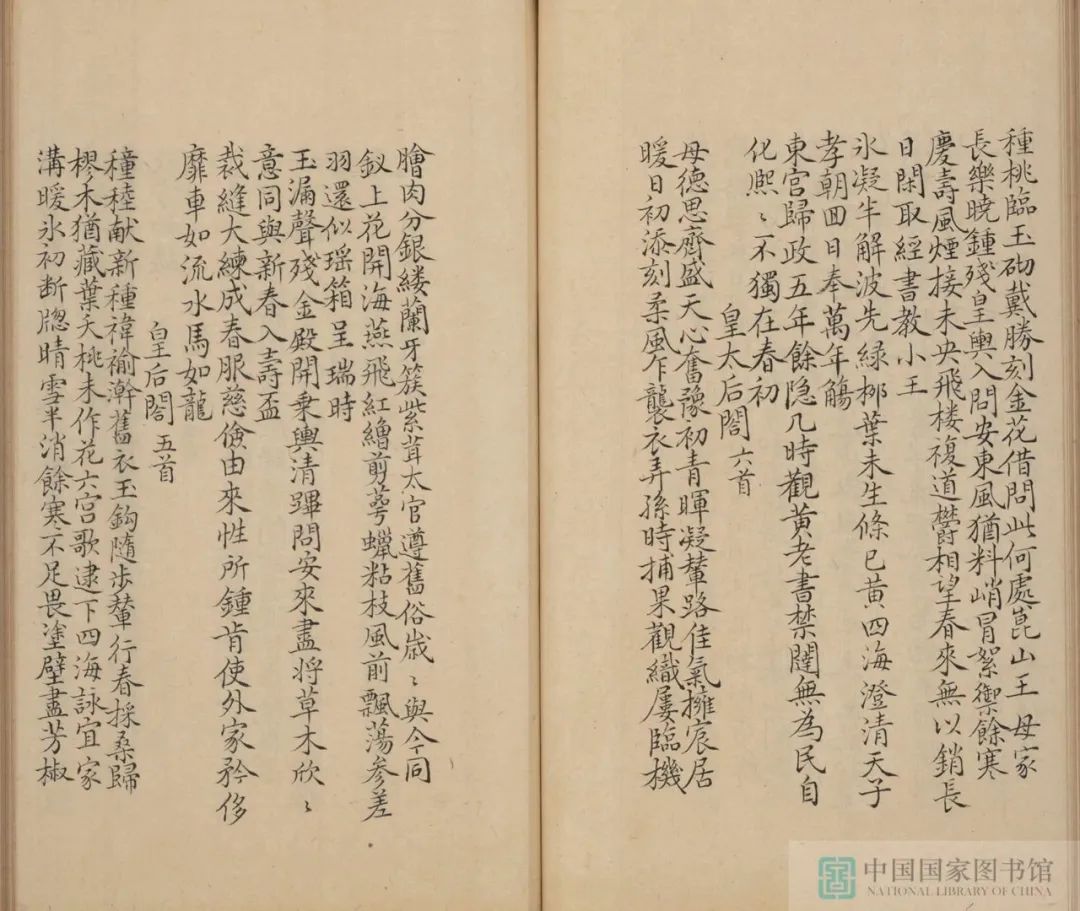 種桃臨玉砌戴勝刻金花借問此何處崑山王母家
長樂曉鍾殘皇輿入問安東風猶料峭冒絮禦餘寒
慶壽風煙接未央飛楼複道欝相望春來無以銷長
日閑取經書教小王
氷凝半解波先緑栁葉未生條已黄四海澄清天子
孝朝囬日奉萬年觴
東宮歸政五年餘隐几時觀黄老書禁闥無為民自
化熙〻不獨在春初
皇太后閤六首
母德思齊盛天心奮豫初青暉凝輦路佳氣擁宸居
暖日初添刻柔風乍襲衣弄孫時捕果觀織屢臨機
膾肉分銀縷蘭牙簇紫茸太官遵舊俗歲〻與今同
釵上花開海燕飛紅繒剪蕚蠟粘枝風前飄蕩參差
羽還似瑶箱呈瑞時
玉漏聲殘金殿開乗輿清蹕問安來盡将草木欣〻
意同與新春入壽盃
裁縫大練成春服慈儉由來性所鍾肯使外家矜侈
靡車如流水馬如龍
皇后閤五首
穜稑献新種褘褕澣舊衣玉鈎随步輦行春採桑歸
樛木猶藏葉夭桃未作花六宮歌逮下四海詠宜家
溝暖氷初断牎晴雪半消餘寒不足畏塗壁盡芳椒
中国国家图书馆
NATIONAL LIBRARY OF CHINA